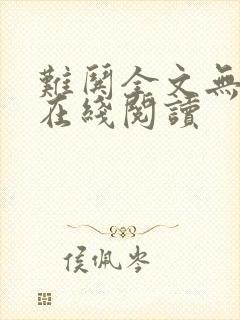 難關全文無
在綫閱讀
侯佩岑